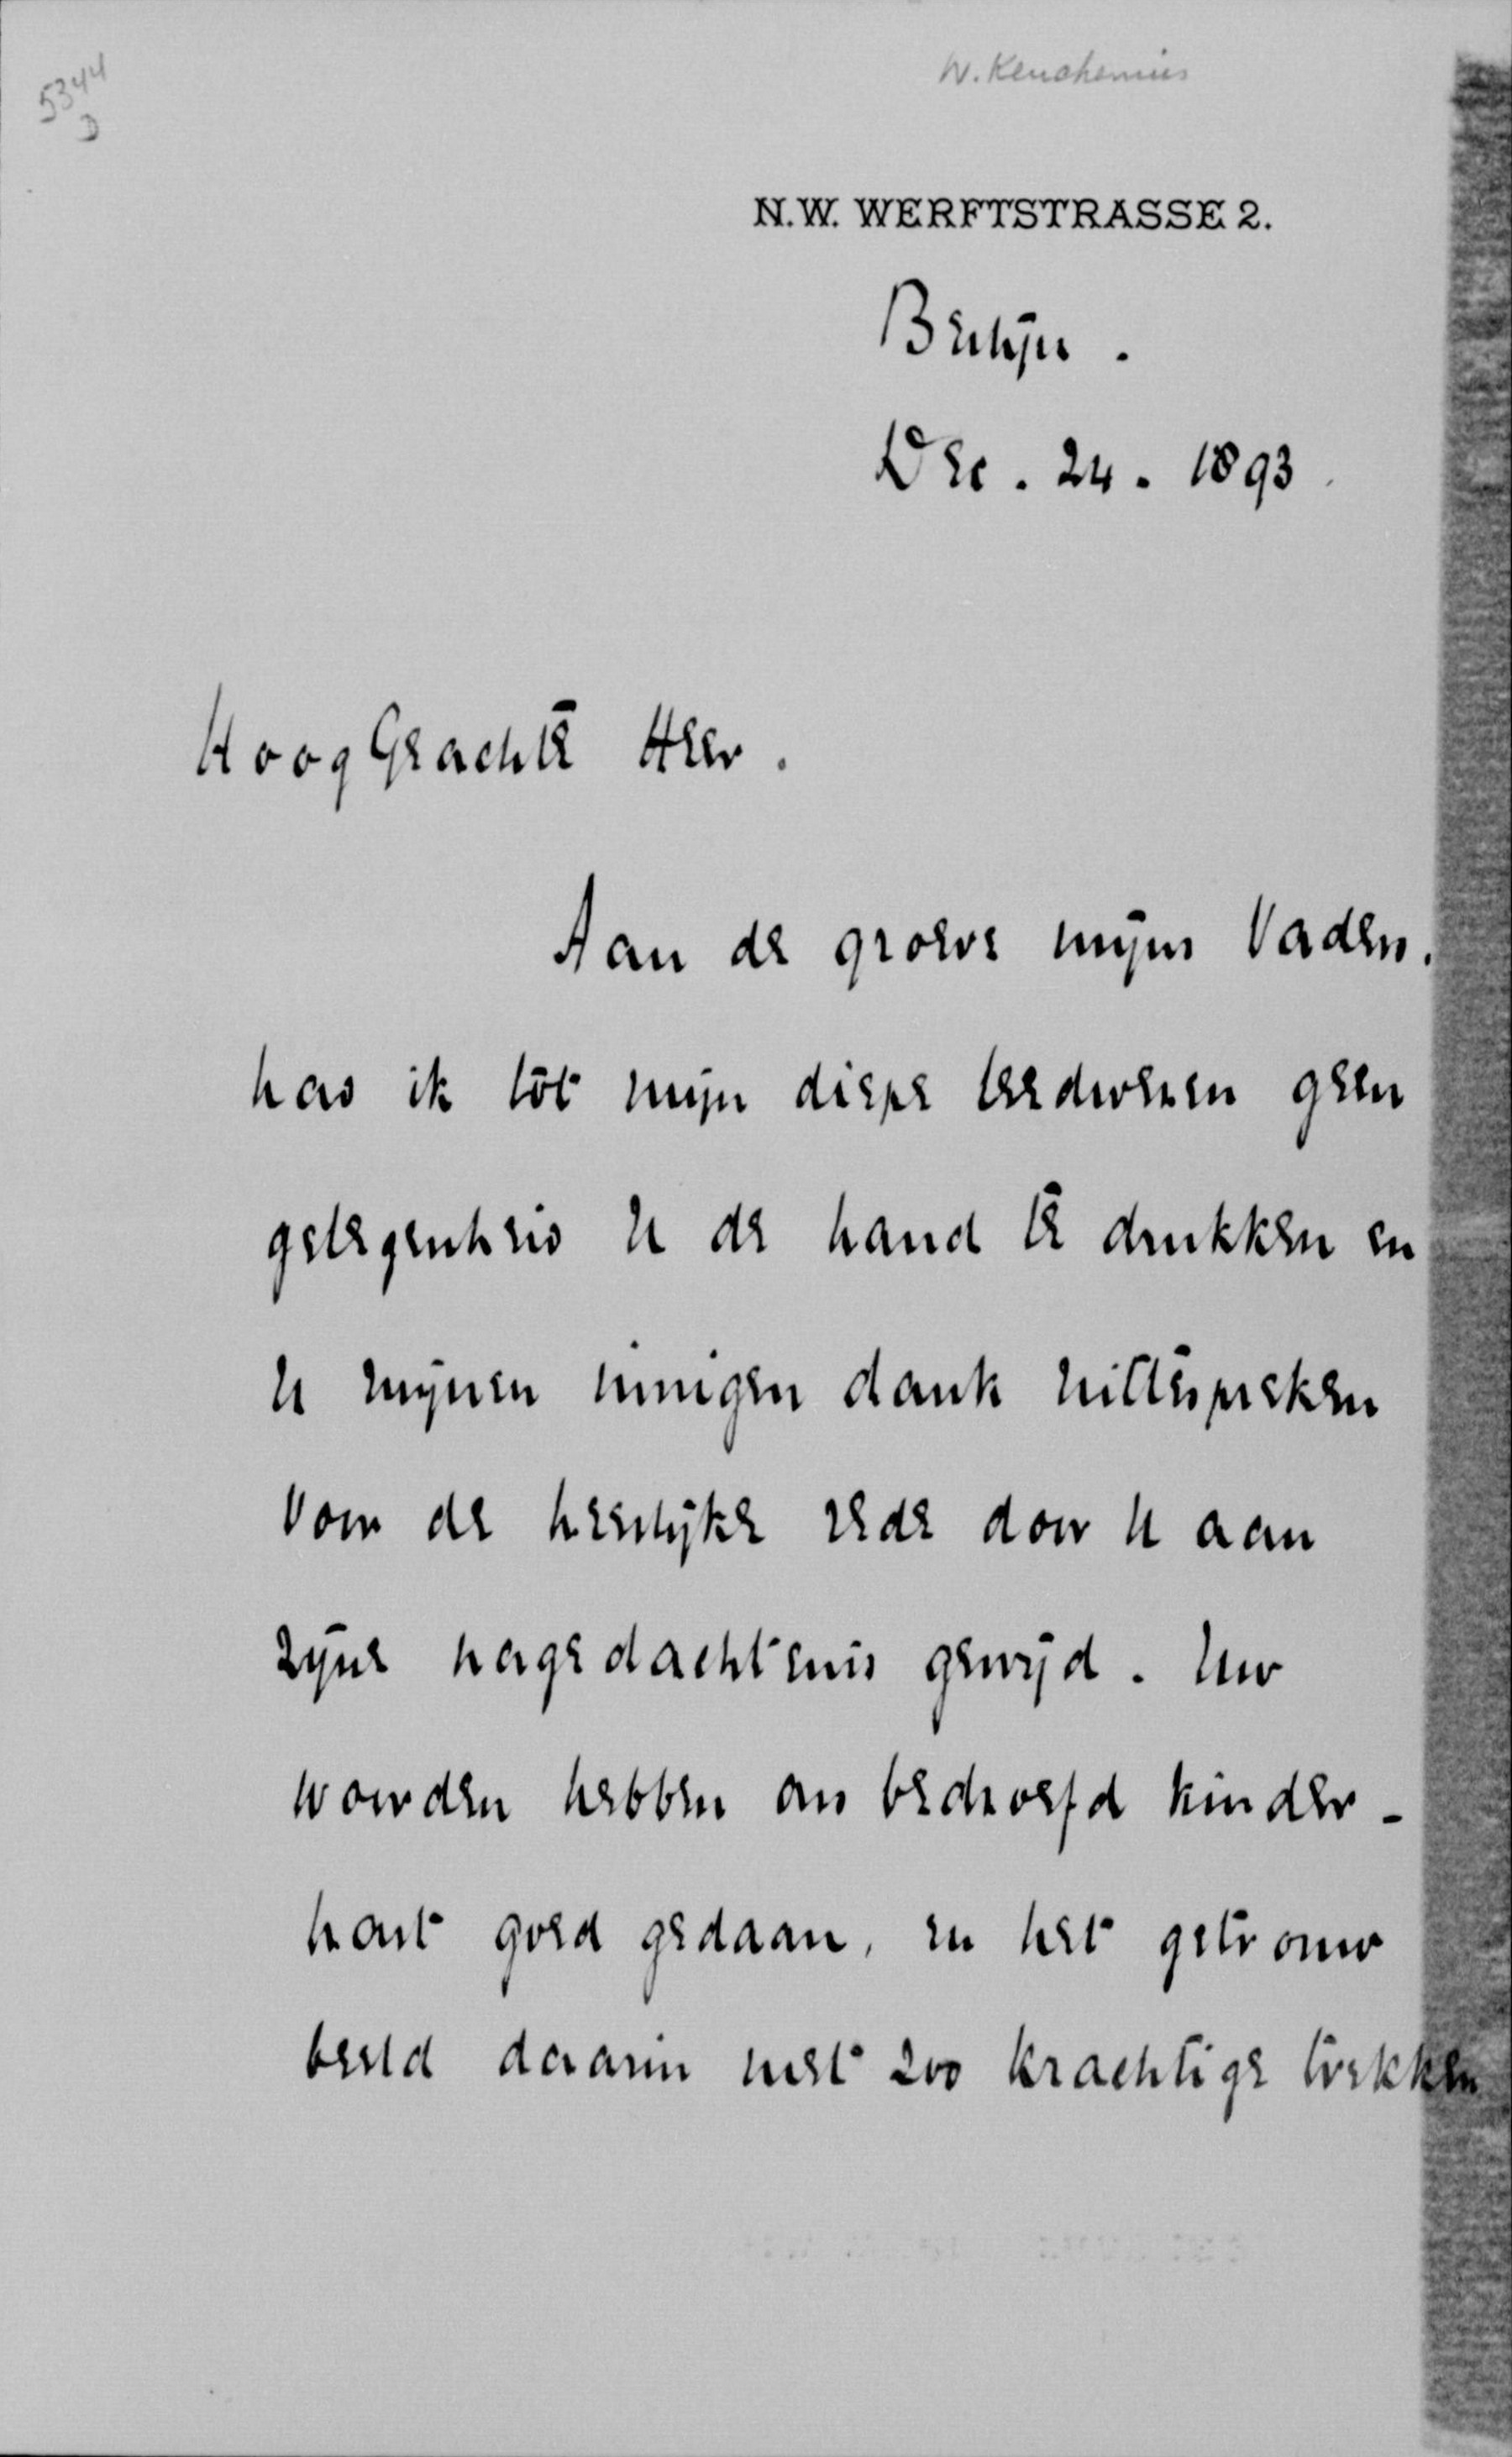 5344
D
W. Keuchenius
N.W. WERFTSTRASSE 2.
Berlijn.
Dec. 24. 1893.
HoogGeachte Heer.
Aan de groeve mijns Vaders.
had ik tot mijn diepe leedwezen geen
gelegenheid U de hand te drukken en
U mijnen innigen dank uittespreken
voor de heerlijke rede door U aan
zijne nagedachtenis gewijd. Uw
woorden hebben ons bedroefd kinder-
hart goed gedaan, en het getrouw
beeld daarin met zoo krachtige trekken